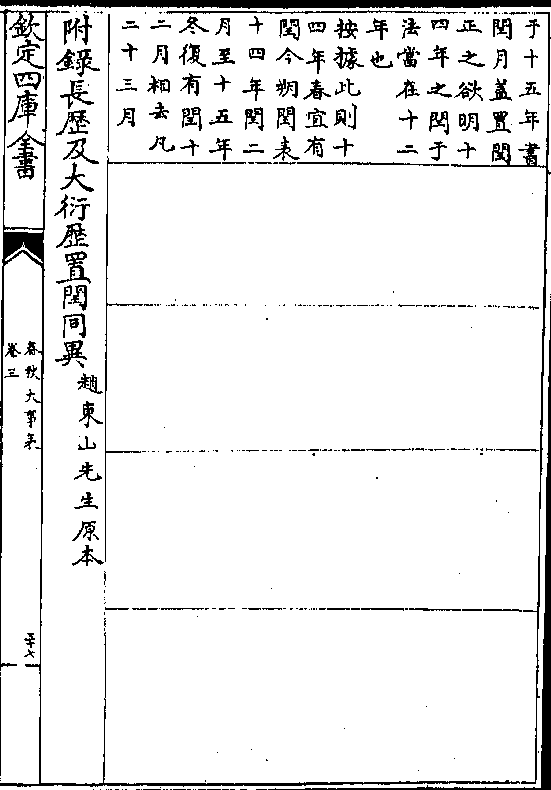 于十五年書
閏月蓋置閏
正之欲明十
四年之閏于
法當在十二
年也
按據此則十
四年春宜有
閏今朔閏表
十四年閏二
月至十五年
冬復有閏十
二月相去凡
二十三月
附錄長歷及大衍歷置閏同異 趙東山先生原本
欽定四庫全書
春秋大事表
卷三
五十八